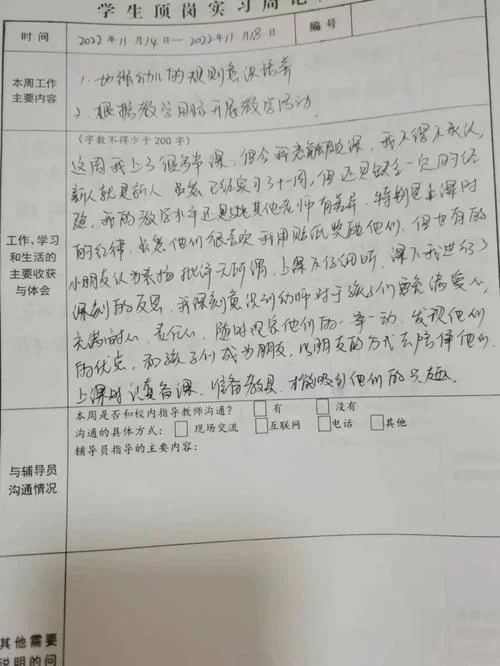 学生顶岗实习周记
时间
2022年11月14日—2022年11月18日
编号
本周工作
主要内容
1. 加强幼儿的规则意识培养
2. 根据教学目标开展教学活动
工作、学习
和生活的
主要收获
与体会
(字数不得少于200字)
这周我上了很多节课,但令我感触颇深,我不得不承认,
新人就是新人,虽然已经实习了十一周,但还是缺乏一定的经
验,我的教学水平还是跟其他老师有差异,特别是上课时
的纪律,虽然他们很喜欢我用贴纸奖励他们,但也有的
小朋友认为表扬批评无所谓,上课不仔细听,课下我进行了
深刻的反思,我深刻意识到幼师对于孩子们要充满爱心,
充满耐心,责任心,随时观察他们的一举一动,发现他们
的优点,和孩子们成为朋友,以朋友的方式去陪伴他们.
上课时认真备课,准备教具,才能吸引他们的兴趣.
与辅导员
沟通情况
本周是否和校内指导教师沟通? 有 没有
沟通的具体方式: 现场交流 互联网 电话 其他
辅导员指导的主要内容:
其他需要
说明的问